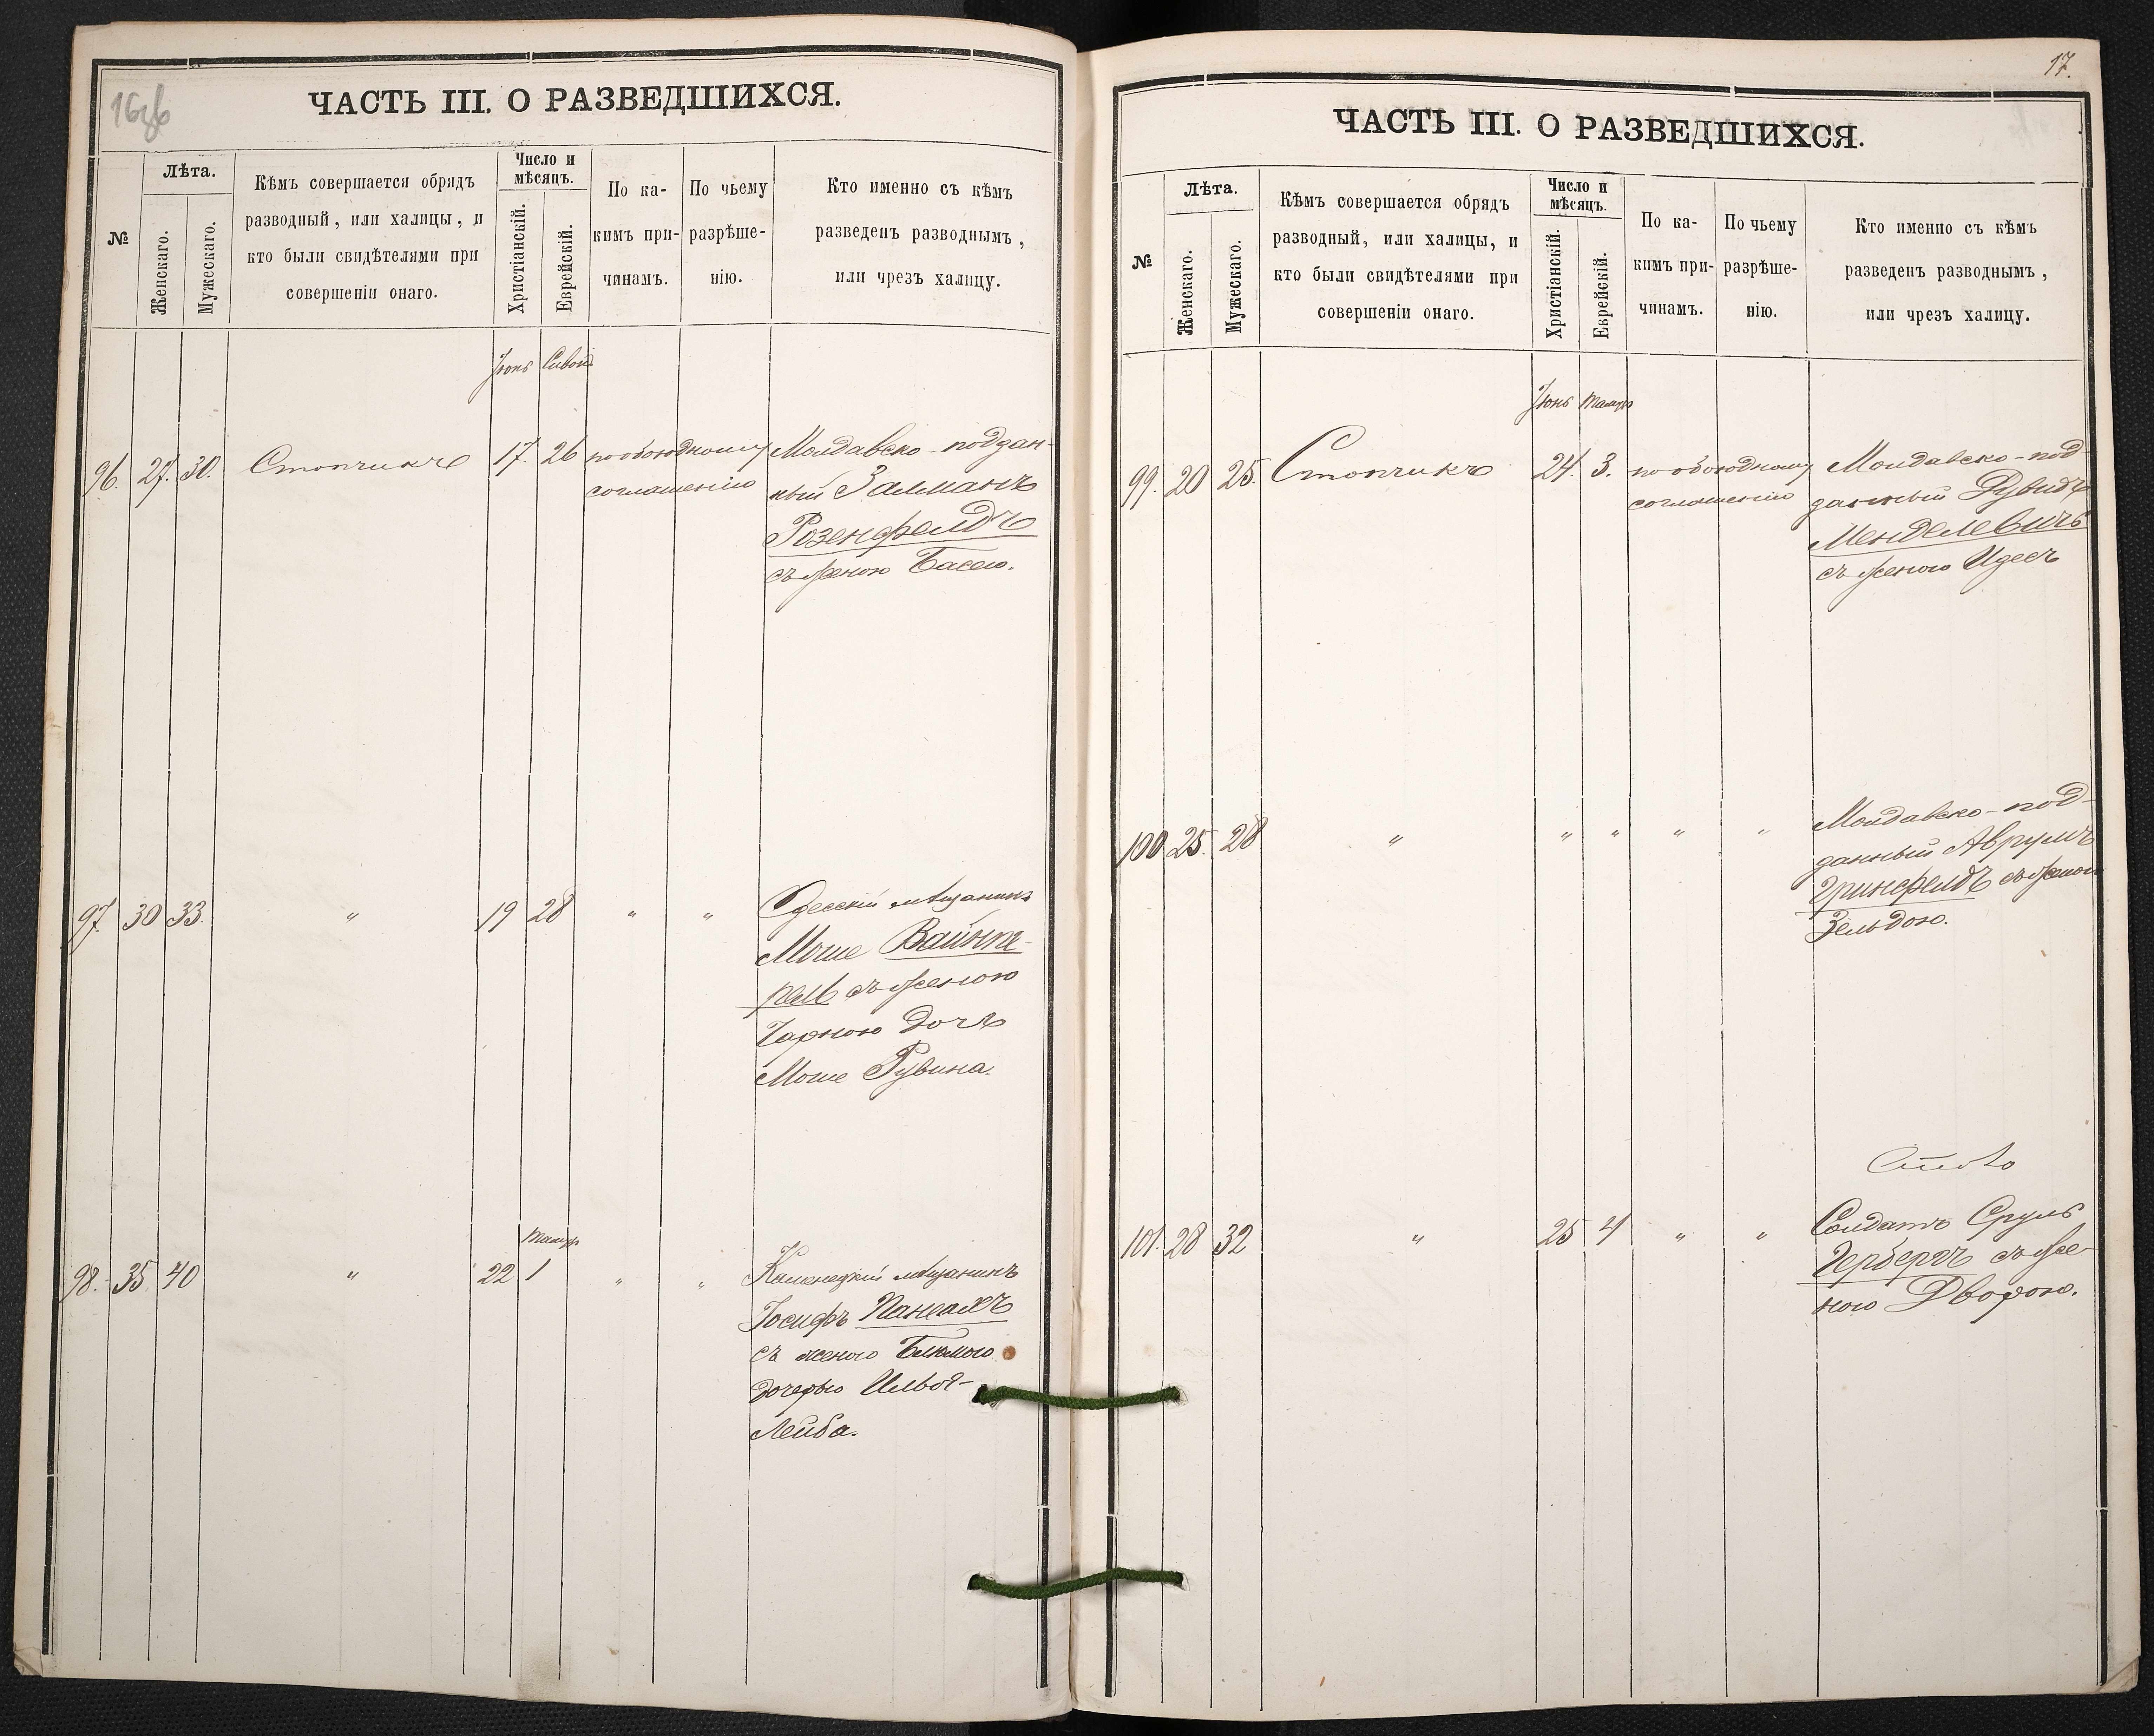 16об
ЧАСТЬ III. О РАЗВЕДШИХСЯ.
№
Лѣта.
Женскаго.
Мужескаго.
Кѣмъ совершается обрядъ
разводный, или халицы, и
кто были свидѣтелями при
совершеніи онаго.
Число и
мѣсяцъ.
Христіанскій.
Еврейскій.
По ка-
кимъ при-
чинамъ.
По чьему
разрѣше-
нію.
Кто именно съ кѣмъ
разведенъ разводнымъ,
или чрезъ халицу.
Іюнь Сивонъ
96. 27. 30. Стопчикъ 17. 26 по обоюдному
соглашенію
Молдавско-поддан-
ный Залманъ
Розенфелдъ
съ женою Басею.
97 30 33. " 19 28 " "
Одесскій мѣщанинъ
Моше Вайнпе-
рель съ женою
Чарною дочь
Моше Рувина.
Тамузъ
98. 35. 40 " 22 1 " "
Каменецкій мѣщанинъ
Іосифъ
съ женою Блюмою
дочерью
Лейба.
17.
ЧАСТЬ III. О РАЗВЕДШИХСЯ.
№
Лѣта.
Женскаго.
Мужескаго.
Кѣмъ совершается обрядъ
разводный, или халицы, и
кто были свидѣтелями при
совершеніи онаго.
Число и
мѣсяцъ.
Христіанскій.
Еврейскій.
По ка-
кимъ при-
чинамъ.
По чьему
разрѣше-
нію.
Кто именно съ кѣмъ
разведенъ разводнымъ,
или чрезъ халицу.
Іюнь Тамузъ
99. 20 25. Стопчикъ 24. 3. по обоюдному
соглашенію
Молдавско-под-
данный Дувидъ
Менделевичъ
съ женою Идесъ
100 25. 28 " " " " "
Молдавско-под-
данный Аврумъ
Гринфелдъ съ женою
Зельдою.
101. 28 32 " 25 4 " "
Солдатъ Сруль
Герберъ съ же-
ною Дворою.